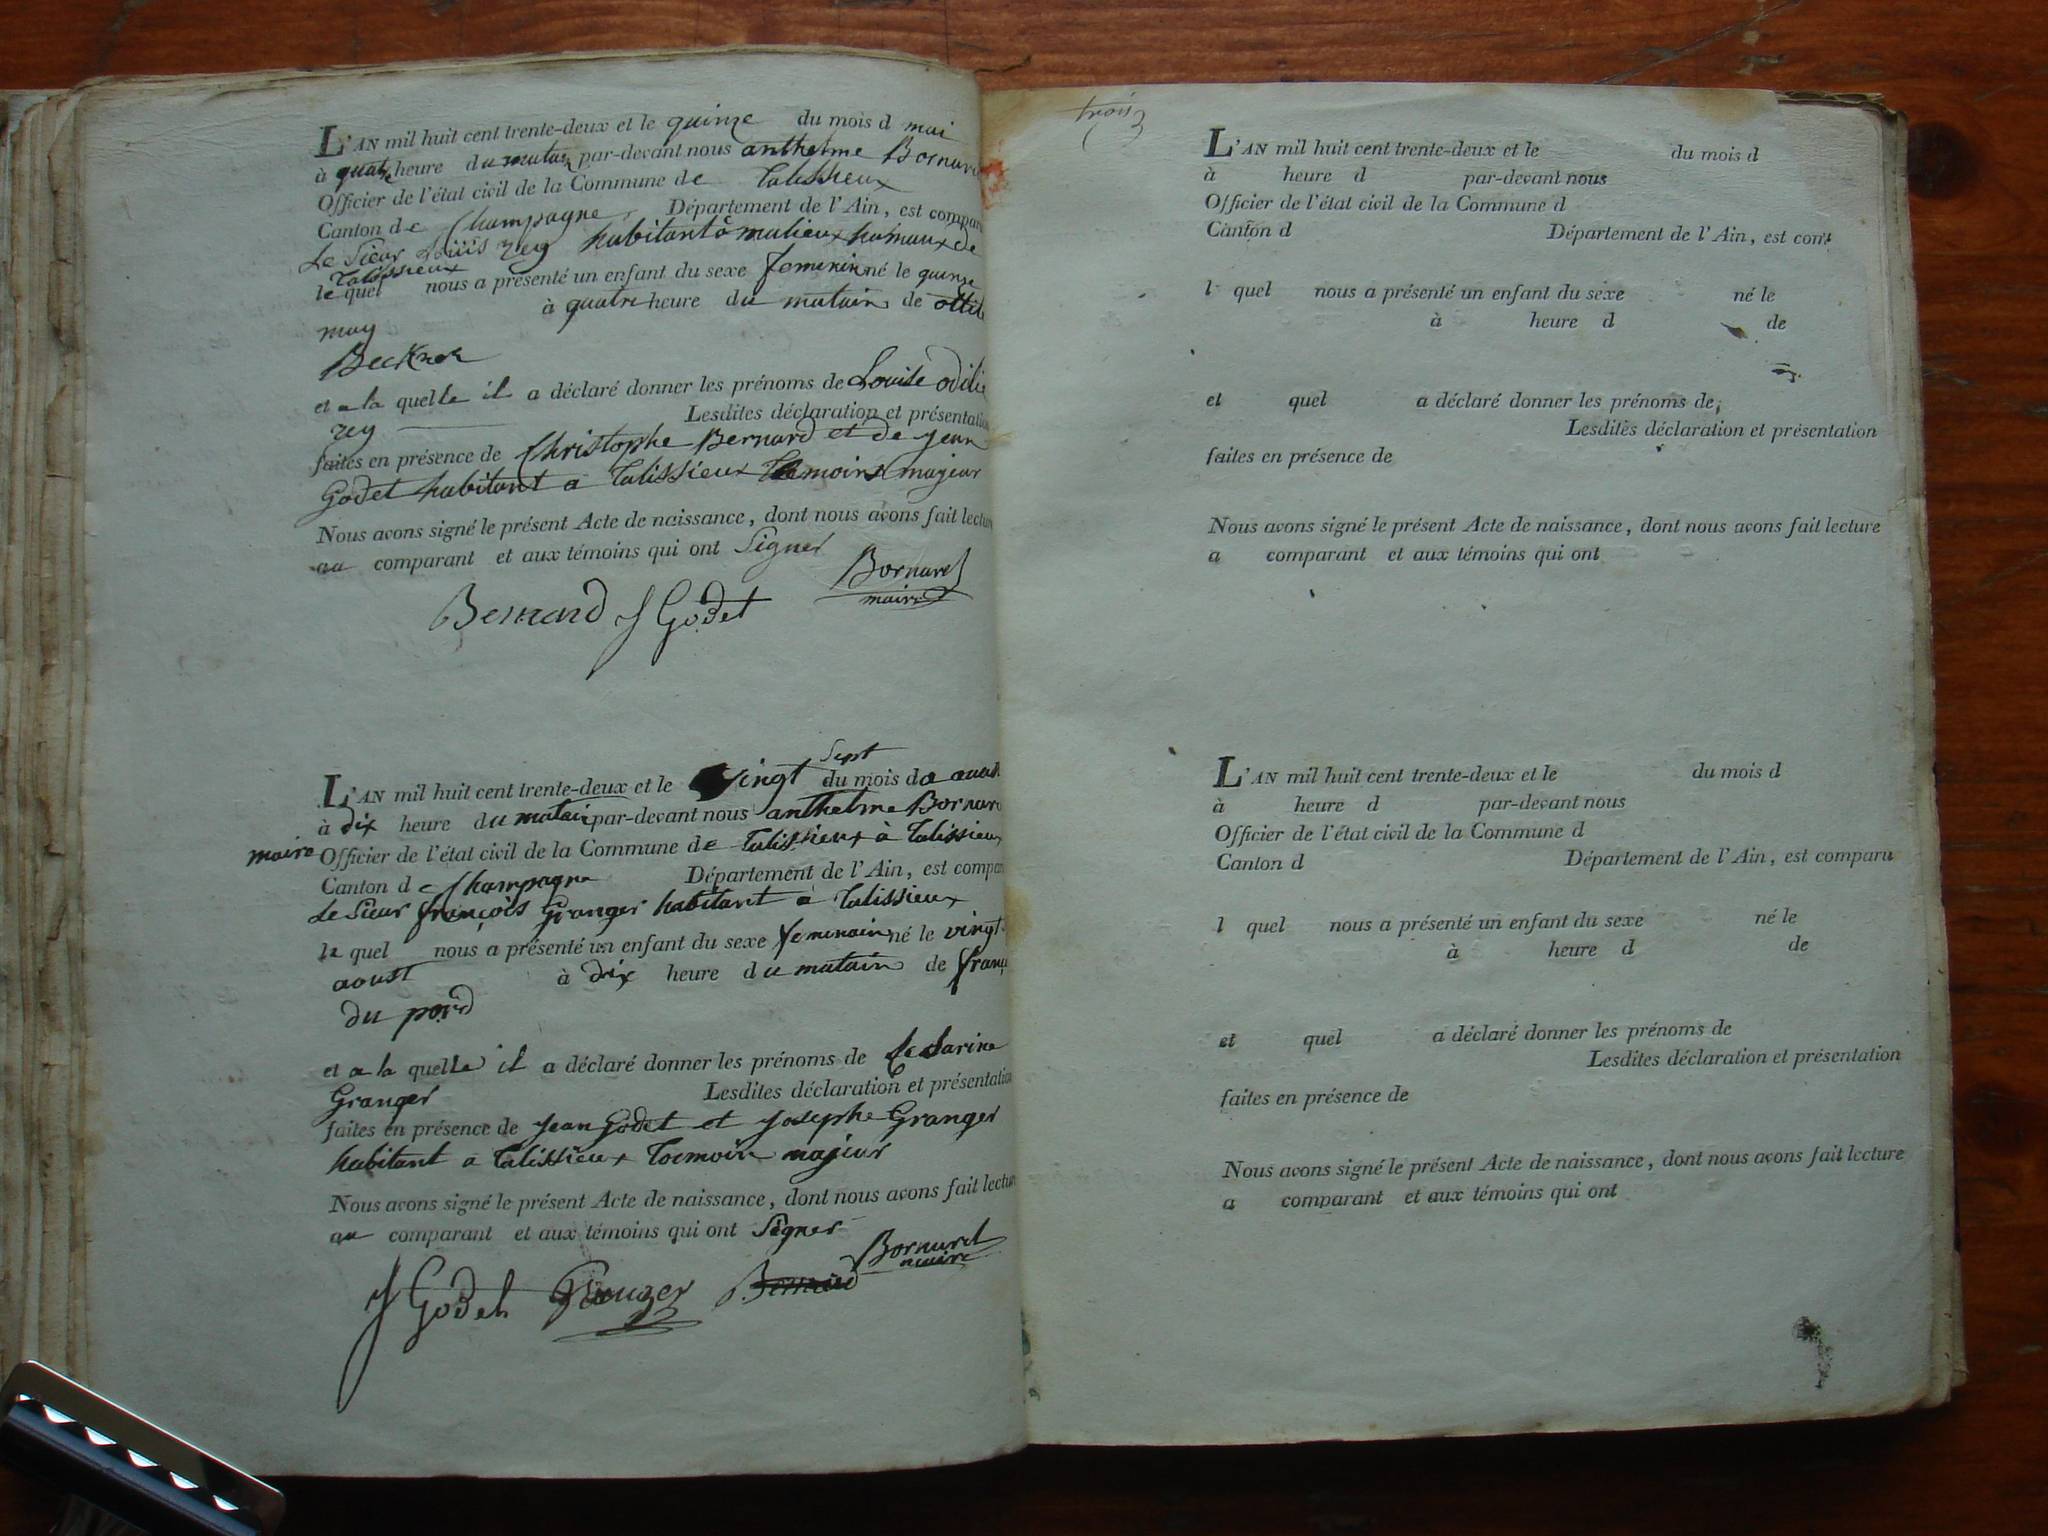 L'AN mil huit cent trente-deux et le quinze du mois d mai
à quatre heure du matin par-devant nous anthelme Bornard
Officier de l'état civil de la Commune de Talissieux
Canton de Champagne Département de l'Ain, est comparu
Le Sieur Louis rey habitant à maulieux hamaux de
Talissieux
le quel nous a présenté un enfant du sexe feminin né le quinze
may à quatre heure du matain de ottile
Beckner
et a la quelle il a déclaré donner les prénoms de Louise odilie
rey Lesdites déclaration et présentation
faites en présence de Christophe Bernard et de jean
Godet habitant a Talissieux temoins majeur
Nous avons signé le présent Acte de naissance, dont nous avons fait lecture
au comparant et aux témoins qui ont Signer
Bornard
maire
Bernard J Godet
Sept
L'AN mil huit cent trente-deux et le vingt du mois de aoust
à dix heure du matain par-devant nous anthelme Bornard
maire Officier de l'état civil de la Commune de Talissieux à Talissieux
Canton de Champagne Département de l'Ain, est comparu
Le Sieur françois Granger habitant à Talissieux
le quel nous a présenté un enfant du sexe feminain né le vingt
aoust à dix heure du matain de
du pond
et a la quelle il a déclaré donner les prénoms de
Granger Lesdites déclaration et présentation
faites en présence de Jean Godet et Josephe Granger
habitant a Talissieux Temoin majeur
Nous avons signé le présent Acte de naissance, dont nous avons fait lecture
au comparant et aux témoins qui ont Signer
Bornard
maire
J Godet Granger Bernard
trois
3
L'AN mil huit cent trente-deux et le du mois d
à heure d par-devant nous
Officier de l'état civil de la Commune d
Canton d Département de l'Ain, est com
l quel nous a présenté un enfant du sexe né le
à heure d de
et quel a déclaré donner les prénoms de
Lesdites déclaration et présentation
faites en présence de
Nous avons signé le présent Acte de naissance, dont nous avons fait lecture
a comparant et aux témoins qui ont
L'AN mil huit cent trente-deux et le du mois d
à heure d par-devant nous
Officier de l'état civil de la Commune d
Canton d Département de l'Ain, est comparu
l quel nous a présenté un enfant du sexe né le
à heure d de
et quel a déclaré donner les prénoms de
Lesdites déclaration et présentation
faites en présence de
Nous avons signé le présent Acte de naissance, dont nous avons fait lecture
a comparant et aux témoins qui ont